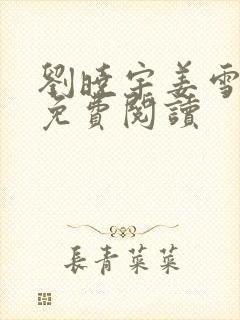 劉曉宇姜雪
免費閱讀
長青菜菜